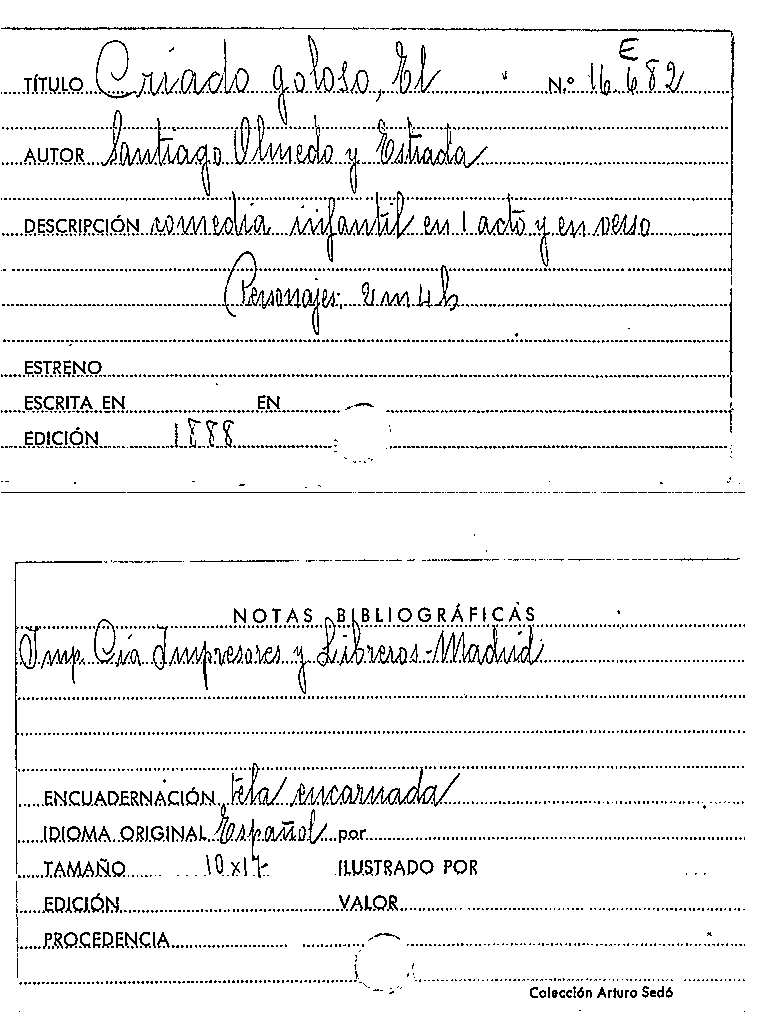 E
TÍTULO Criado goloso, El N.º 16.682
AUTOR Santiago Olmedo y Estrada
DESCRIPCIÓN comedia infantil en 1 acto y en verso
Personajes: 2 m 4 h
ESTRENO
ESCRITA EN EN
EDICIÓN 1888
NOTAS BIBLIOGRÁFICAS
Imp. Cía Impresores y Libreros-Madrid
ENCUADERNACIÓN tela encarnada
IDIOMA ORIGINAL Español por
TAMAÑO 10x17 ILUSTRADO POR
EDICIÓN VALOR
PROCEDENCIA
Colección Arturo Sedó